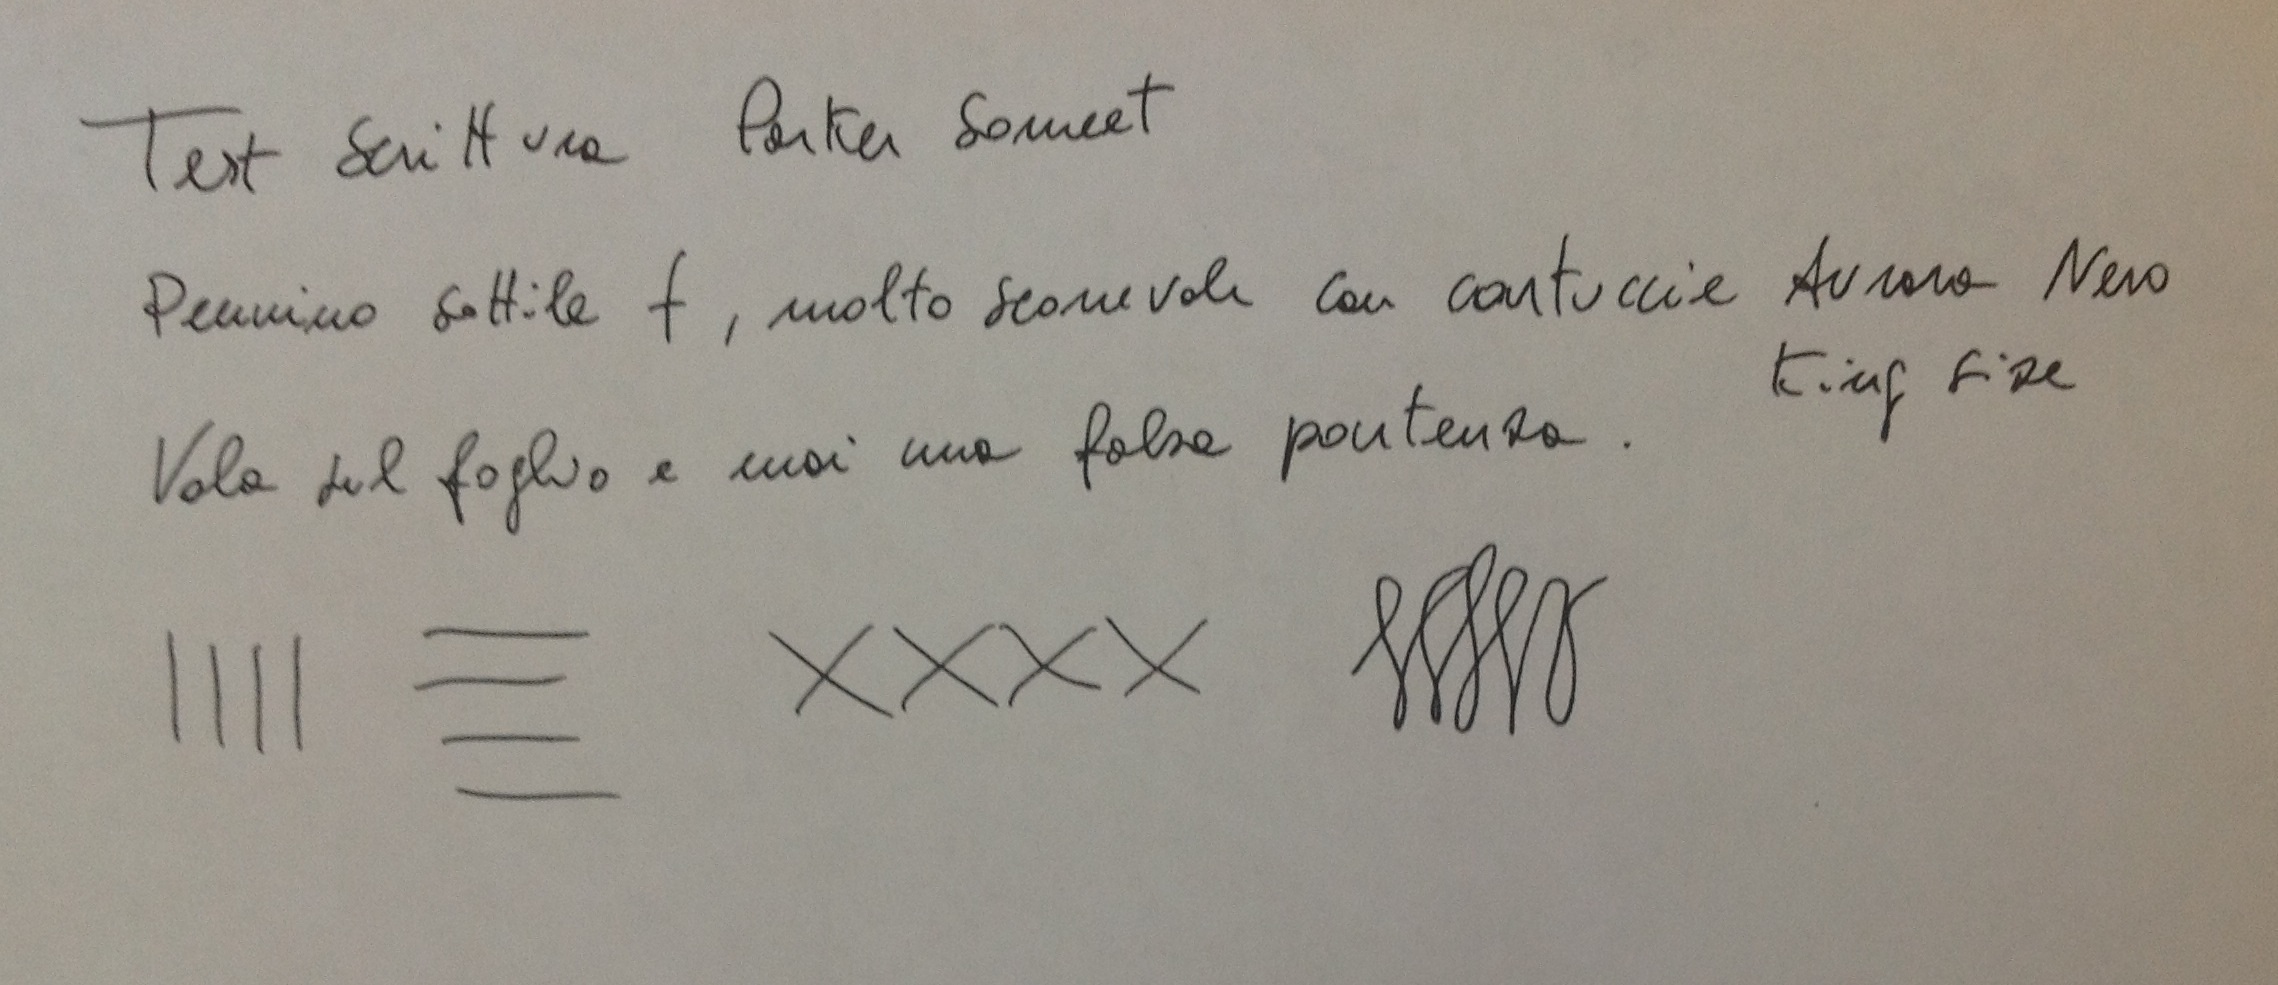 Test scrittura Parker Sonnet
Pennino sottile f, molto scorrevole con cartuccie Aurora Nero
King size
Vola sul foglio e mai una falsa partenza.
XXXX